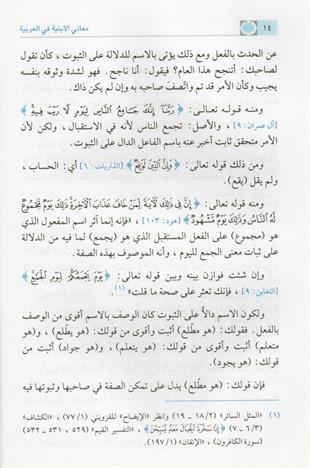 ١٤ معاني الأبنية في العربية
عن الحدث بالفعل ومع ذلك يؤتى بالاسم للدلالة على الثبوت ، كأن تقول
لصاحبك : أتنجح هذا العام؟ فيقول: أنا ناجح. فهو لشدة وثوقه بنفسه
يجيب وكأن الأمر قد تم واتّصف صاحبه به وإن لم يكن ذاك.
ومنه قوله تعالى: ﴿ رَبَّنَآ إِنَّكَ جَامِعُ النَّاسِ لِيَوْمٍ لَّا رَيْبَ فِيهِ ﴾
[آل عمران: ٩] ، والأصل: تجمع الناس لأنه في الاستقبال ، ولكن لأن
الأمر متحقق ثابت أخبر عنه باسم الفاعل الدال على الثبوت.
ومن ذلك قوله تعالى: ﴿ وَإِنَّ الدِّينَ لَوَاقِعٌ ﴾ [الذاريات: ٦] أي: الحساب ،
ولم يقل (يقع).
ومنه قوله تعالى: ﴿ إِنَّ فِي ذَٰلِكَ لَآيَةً لِّمَنْ خَافَ عَذَابَ الْآخِرَةِ ذَٰلِكَ يَوْمٌ مَّجْمُوعٌ
لَّهُ النَّاسُ وَذَٰلِكَ يَوْمٌ مَّشْهُودٌ ﴾ [هود: ١٠٣] ، «فإنه إنما آثر اسم المفعول الذي
هو (مجموع) على الفعل المستقبل الذي هو (يجمع) لما فيه من الدلالة
على ثبات معنى الجمع لليوم ، وأنه الموصوف بهذه الصفة.
وإن شئت فوازن بينه وبين قوله تعالى: ﴿ يَوْمَ يَجْمَعُكُمْ لِيَوْمِ الْجَمْعِ ﴾
[التغابن: ٩] ، فإنك تعثر على صحة ما قلت» (١).
ولكون الاسم دالاً على الثبوت كان الوصف بالاسم أقوى من الوصف
بالفعل. فقولك: (هو مطّلع) أثبت وأقوى من قولك: (هو يطّلع) ، و(هو
متعلم) أثبت وأقوى من قولك: (هو يتعلم) ، و(هو جواد) أثبت من
قولك: (هو يجود).
فإن قولك: (هو مطّلع) يدل على تمكن الصفة في صاحبها وثبوتها فيه
(١) «المثل السائر» (١٨/٢ - ١٩) وانظر «الإيضاح» للقزويني (٧٧/١) ، «الكشاف»
(٦/٣ - ٧) ﴿ إِنَّا سَخَّرْنَا الْجِبَالَ مَعَهُ يُسَبِّحْنَ ﴾ ، «التفسير القيم» (٥٢٩ ، ٥٣١ - ٥٣٢)
(سورة الكافرون) ، «الإتقان» (١٩٧/١).